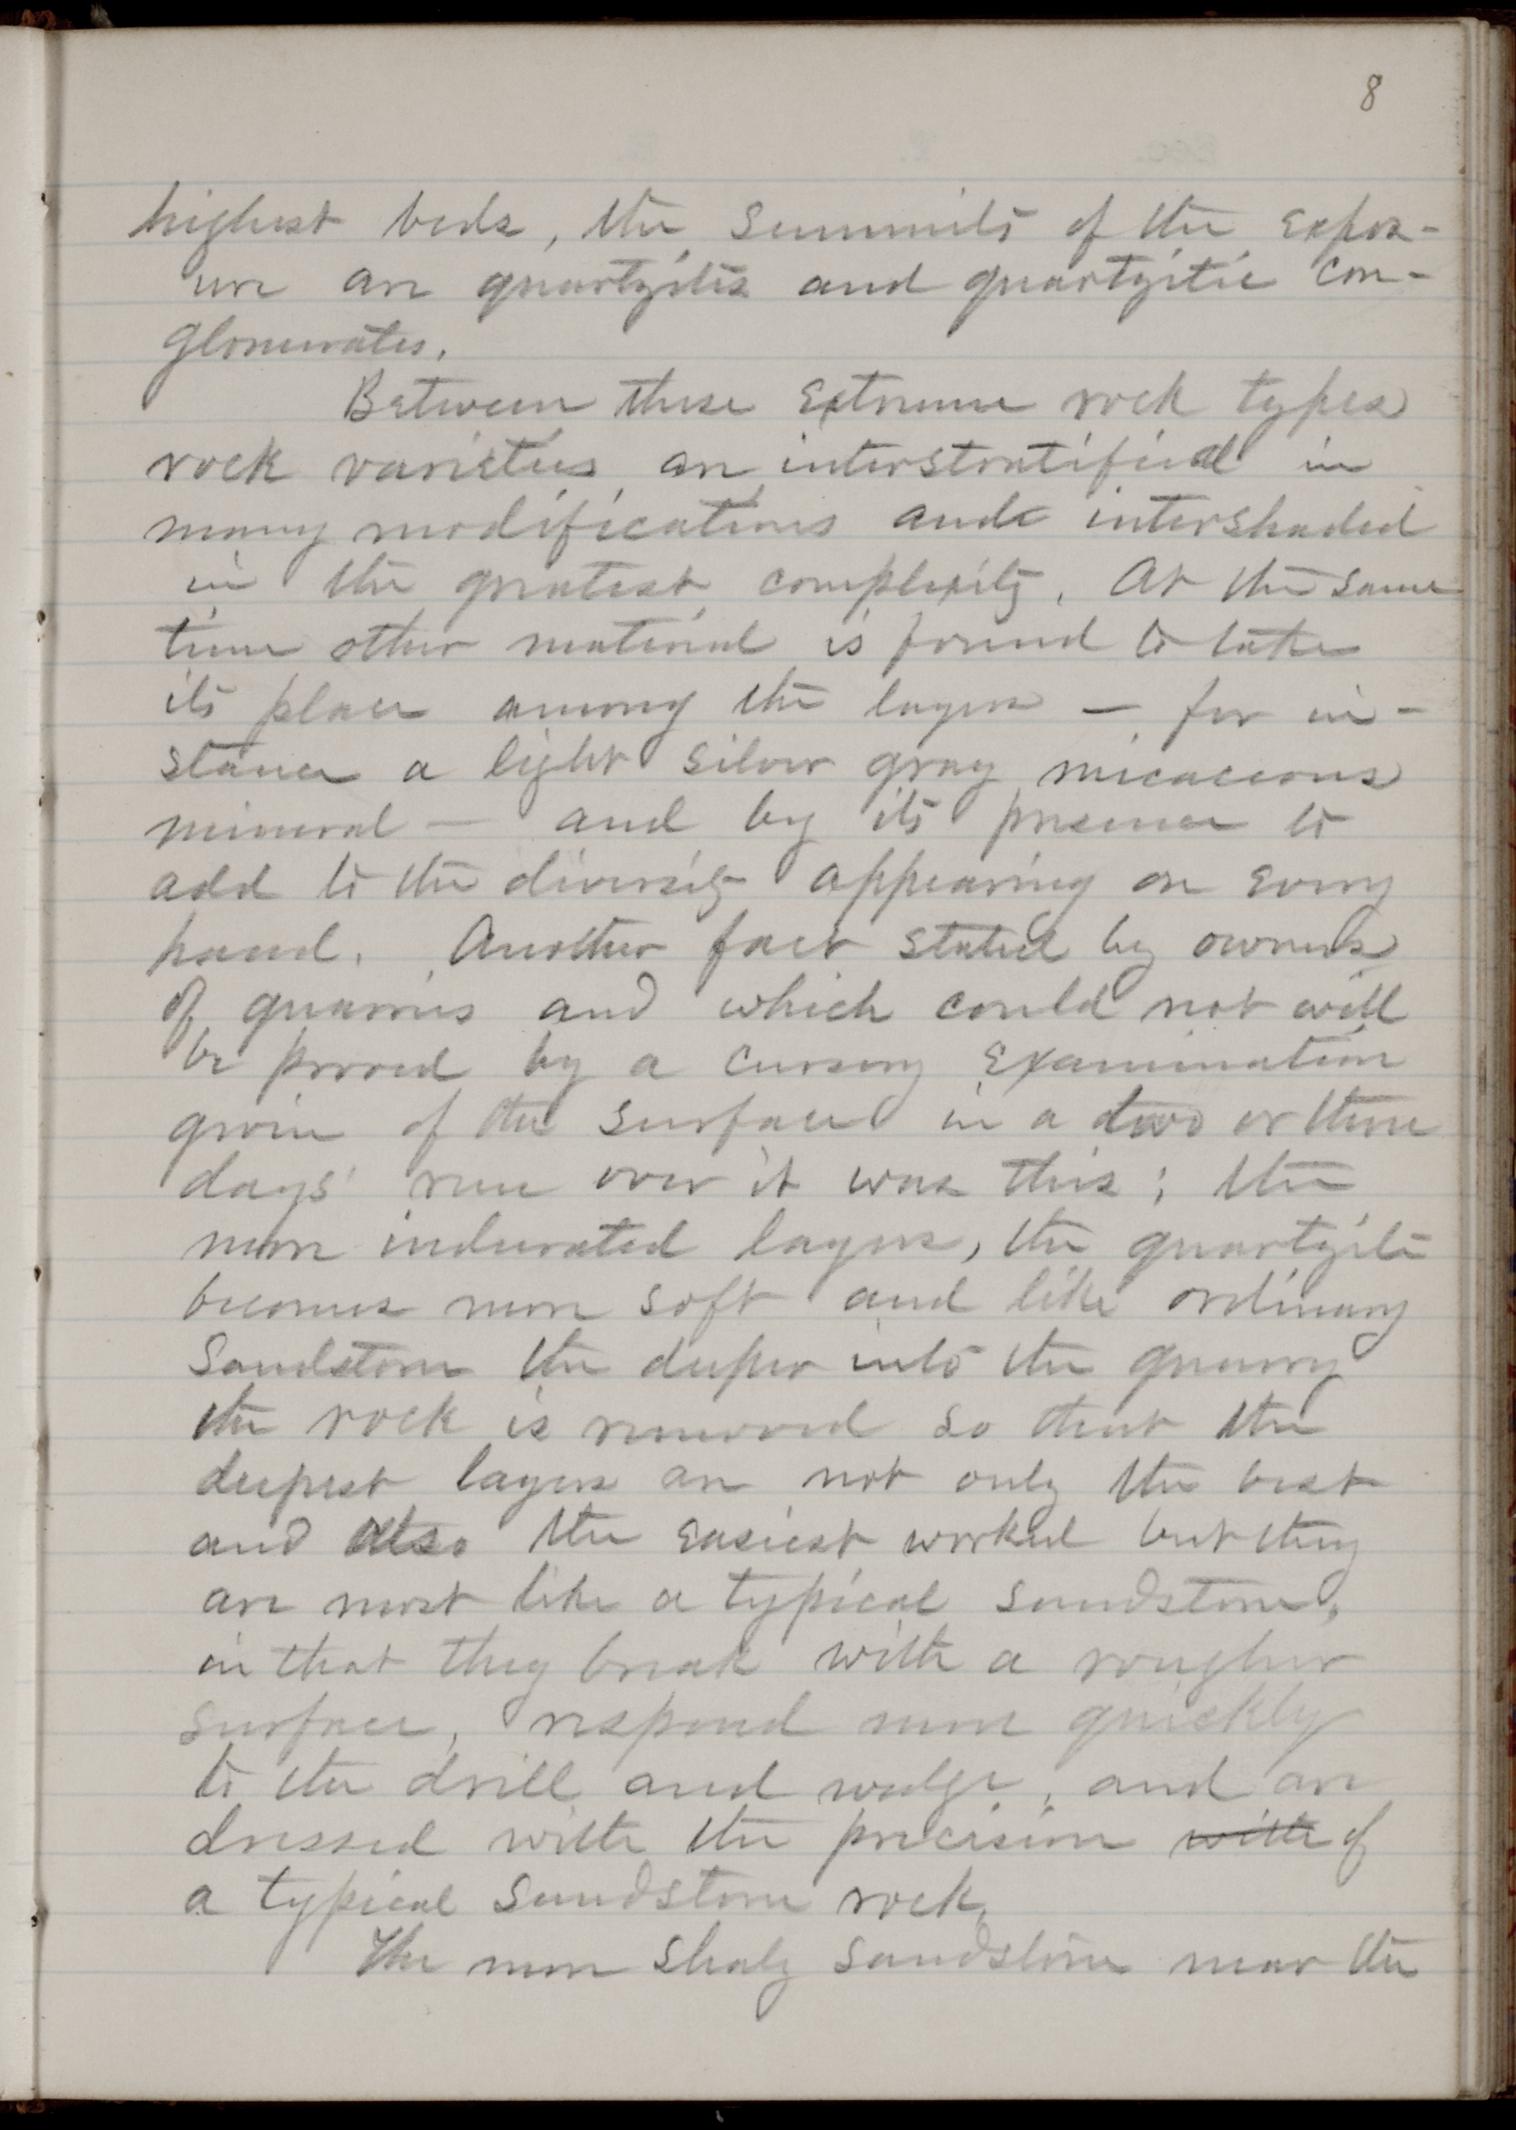 8
highest beds, the summits of the expos-
ure are quartzites and quartzitic con-
glomerates.
Between these extreme rock types
rock varieties are interstratified in
many modifications and intershaded
in the greatest complexity. At the same
time other material is found to take
its place among the layers — for in-
stance a light silver gray micaceous
mineral — and by its presence to
add to the diversity appearing on every
hand. Another fact stated by owners
of quarries and which could not well
be proved by a cursory examination
given of the surface in a two or three
days' run over it was this; the
more indurated layers, the quartzite
becomes more soft and like ordinary
sandstone the deeper into the quarry
the rock is removed so that the
deepest layers are not only the best
and also the easiest worked but they
are most like a typical sandstone,
in that they break with a rougher
surface, respond more quickly
to the drill and wedge, and are
dressed with the precision with of
a typical sandstone rock.
The more shaly sandstone near the